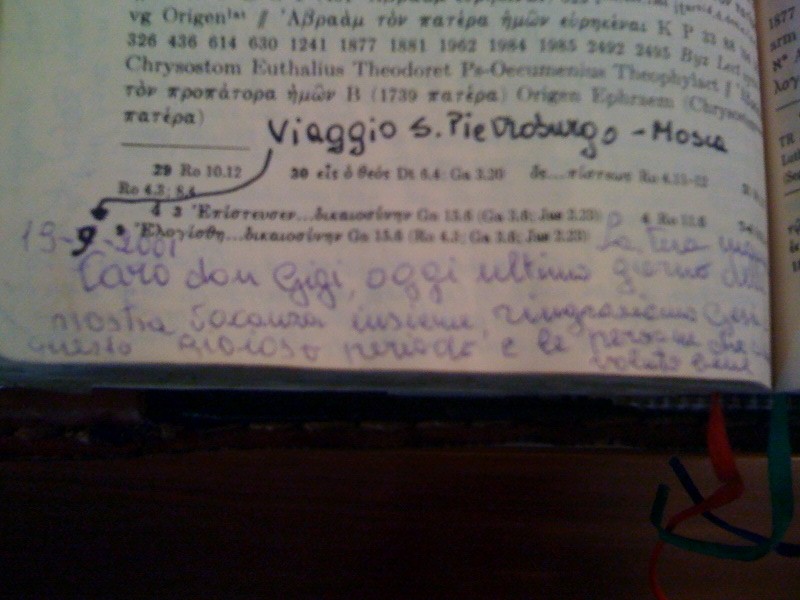 vg Origen^lat // Ἀβραὰμ τὸν πατέρα ἡμῶν εὑρηκέναι K P
326 436 614 630 1241 1877 1881 1962 1984 1985 2492 2495 Byz Lect
Chrysostom Euthalius Theodoret Ps-Oecumenius Theophylact //
τὸν προπάτορα ἡμῶν B (1739 πατέρα) Origen Ephraem
πατέρα)
Viaggio S. Pietroburgo - Mosca
29 Ro 10.12 30 εἷς ὁ θεός Dt 6.4; Ga 3.20 ὃς...πίστεως Ro 4.11-12
Ro 4.3; 8.4
4 3 Ἐπίστευσεν...δικαιοσύνην Ga 15.6 (Ga 3.6; Jas 2.23) 4 Ro 11.6
5 Ἐλογίσθη...δικαιοσύνην Ga 15.6 (Ro 4.3; Ga 3.6; Jas 2.23)
19-9-2001 La tua
Caro don Gigi, oggi ultimo giorno della
nostra vacanza insieme, ringraziamo
questo gioioso periodo e le persone che
voluto bene
1877
arm
TR